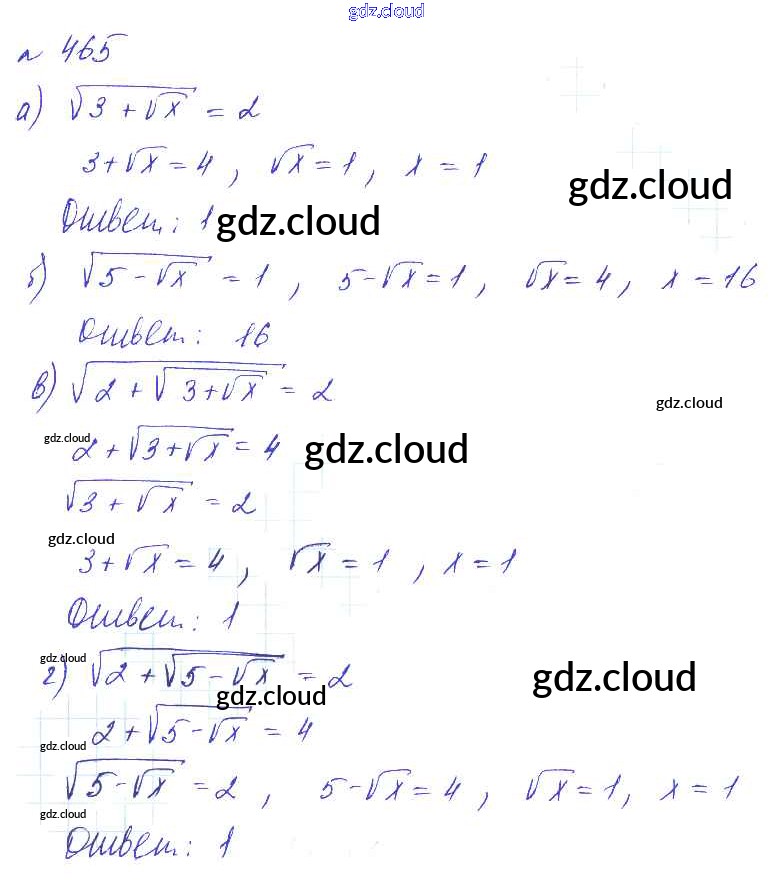 gdz.cloud
№ 465
а) √(3 + √x) = 2
3 + √x = 4, √x = 1, x = 1
gdz.cloud
Ответ: 1 gdz.cloud
б) √(5 - √x) = 1, 5 - √x = 1, √x = 4, x = 16
Ответ: 16
в) √(2 + √(3 + √x)) = 2
gdz.cloud
gdz.cloud 2 + √(3 + √x) = 4 gdz.cloud
√(3 + √x) = 2
gdz.cloud
3 + √x = 4, √x = 1, x = 1
Ответ: 1
gdz.cloud
г) √(2 + √(5 - √x)) = 2 gdz.cloud
gdz.cloud
2 + √(5 - √x) = 4
gdz.cloud
√(5 - √x) = 2, 5 - √x = 4, √x = 1, x = 1
gdz.cloud
Ответ: 1